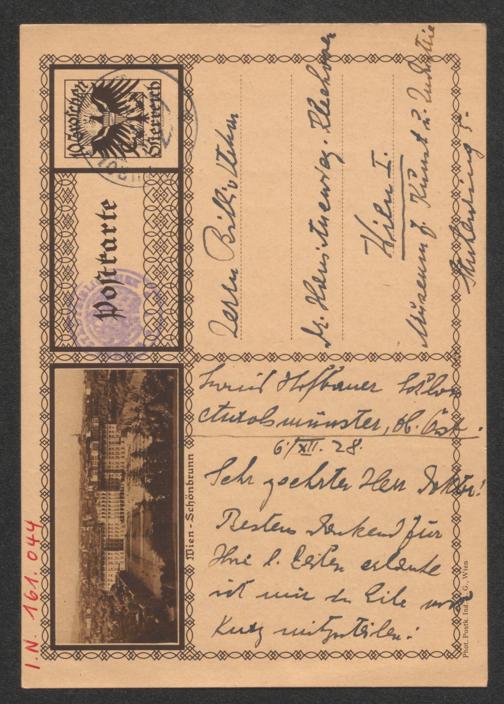 10 Groschen
Österreich
Postkarte
Herrn Bibliothekar
Dr. Hans
Wien I.
Museum f. Kunst u. Industrie
Stubenring 5.
Wien - Schönbrunn
Hofbauer Schloss
Aurolzmünster, Ob. Öst.
6./XII. 28.
Sehr geehrter Herr Doktor!
Bestens dankend für
Ihre l. Zeilen erlaube
ich mir in Eile nur
kurz mitzuteilen:
Phot. Postk. Ind. A. G., Wien
I.N. 161.044